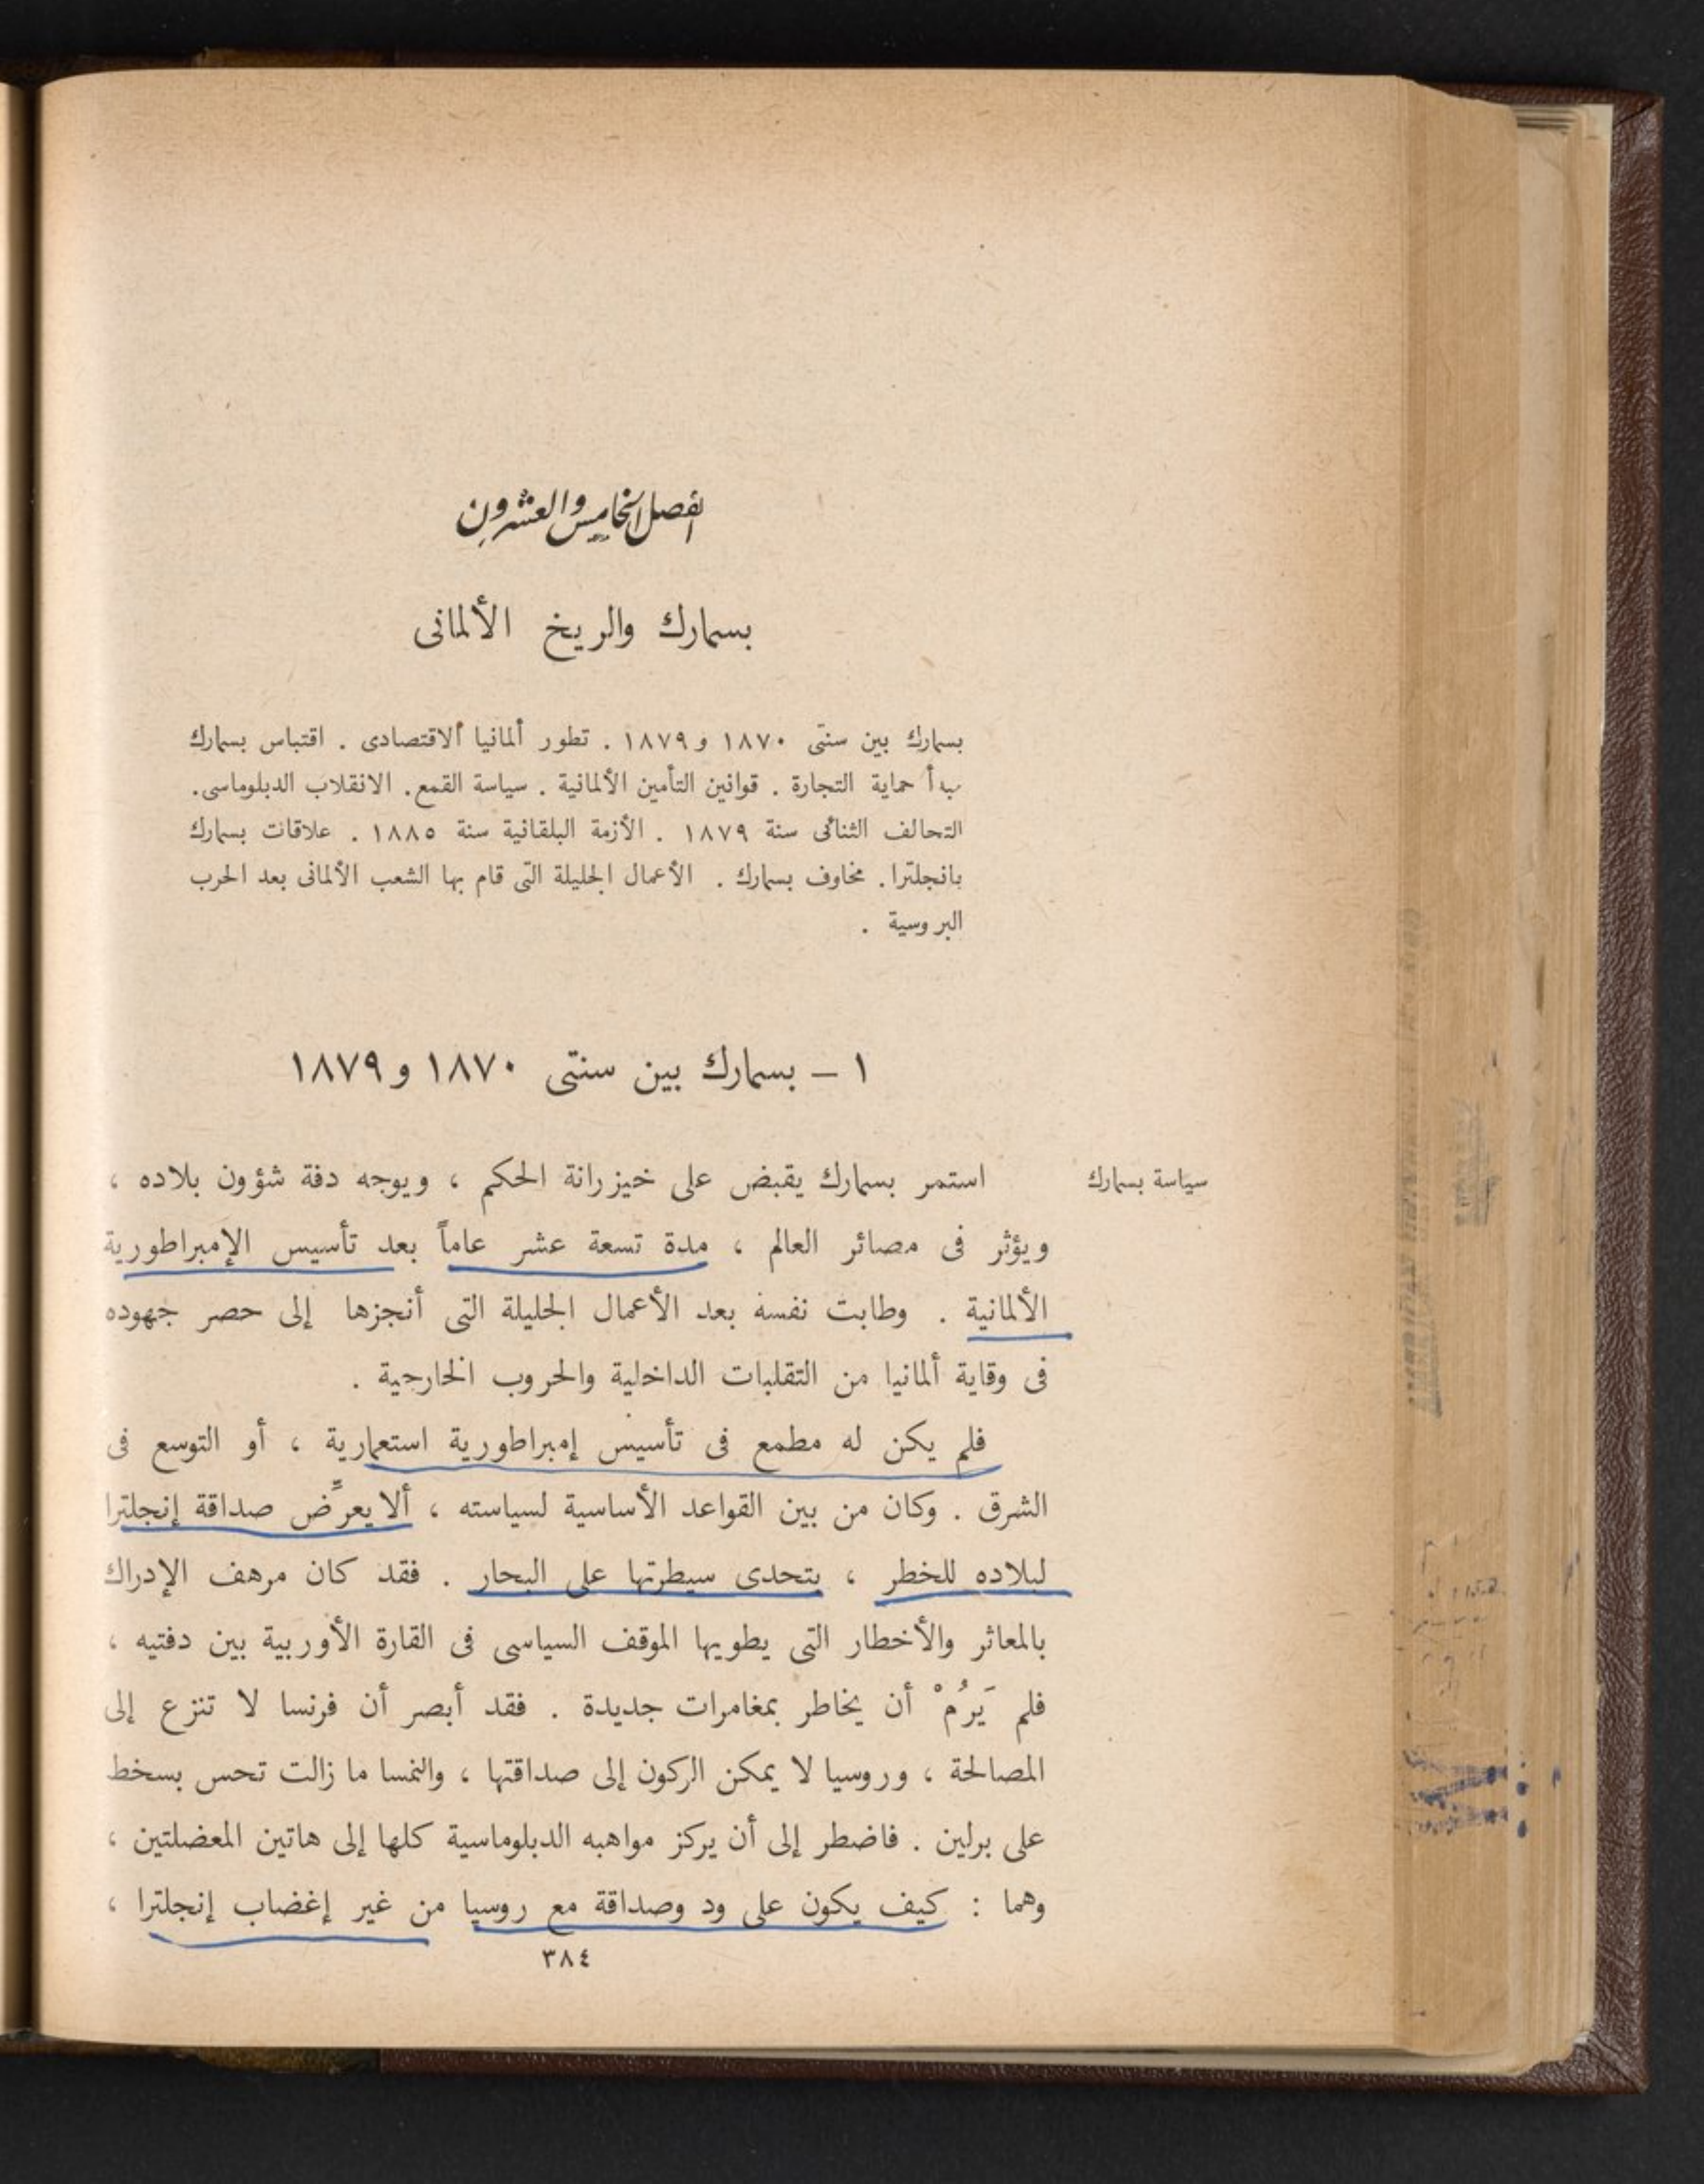 الفصل الخامس والعشرون
بسمارك والريخ الألمانى
بسمارك بين سنتى ١٨٧٠ و ١٨٧٩ . تطور ألمانيا الاقتصادى . اقتباس بسمارك
مبدأ حماية التجارة . قوانين التأمين الألمانية . سياسة القمع . الانقلاب الدبلوماسى .
التحالف الثنائى سنة ١٨٧٩ . الأزمة البلقانية سنة ١٨٨٥ . علاقات بسمارك
بانجلترا . مخاوف بسمارك . الأعمال الجليلة التى قام بها الشعب الألمانى بعد الحرب
البروسية .
١ – بسمارك بين سنتى ١٨٧٠ و ١٨٧٩
سياسة بسمارك
استمر بسمارك يقبض على خيزرانة الحكم ، ويوجه دفة شؤون بلاده ،
ويؤثر فى مصائر العالم ، مدة تسعة عشر عاماً بعد تأسيس الإمبراطورية
الألمانية . وطابت نفسه بعد الأعمال الجليلة التى أنجزها إلى حصر جهوده
فى وقاية ألمانيا من التقلبات الداخلية والحروب الخارجية .
فلم يكن له مطمع فى تأسيس إمبراطورية استعمارية ، أو التوسع فى
الشرق . وكان من بين القواعد الأساسية لسياسته ، ألا يعرِّض صداقة إنجلترا
لبلاده للخطر ، بتحدى سيطرتها على البحار . فقد كان مرهف الإدراك
بالمعاثر والأخطار التى يطويها الموقف السياسى فى القارة الأوربية بين دفتيه ،
فلم يَرُمْ أن يخاطر بمغامرات جديدة . فقد أبصر أن فرنسا لا تنزع إلى
المصالحة ، وروسيا لا يمكن الركون إلى صداقتها ، والنمسا ما زالت تحس بسخط
على برلين . فاضطر إلى أن يركز مواهبه الدبلوماسية كلها إلى هاتين المعضلتين ،
وهما : كيف يكون على ود وصداقة مع روسيا من غير إغضاب إنجلترا ،
٣٨٤